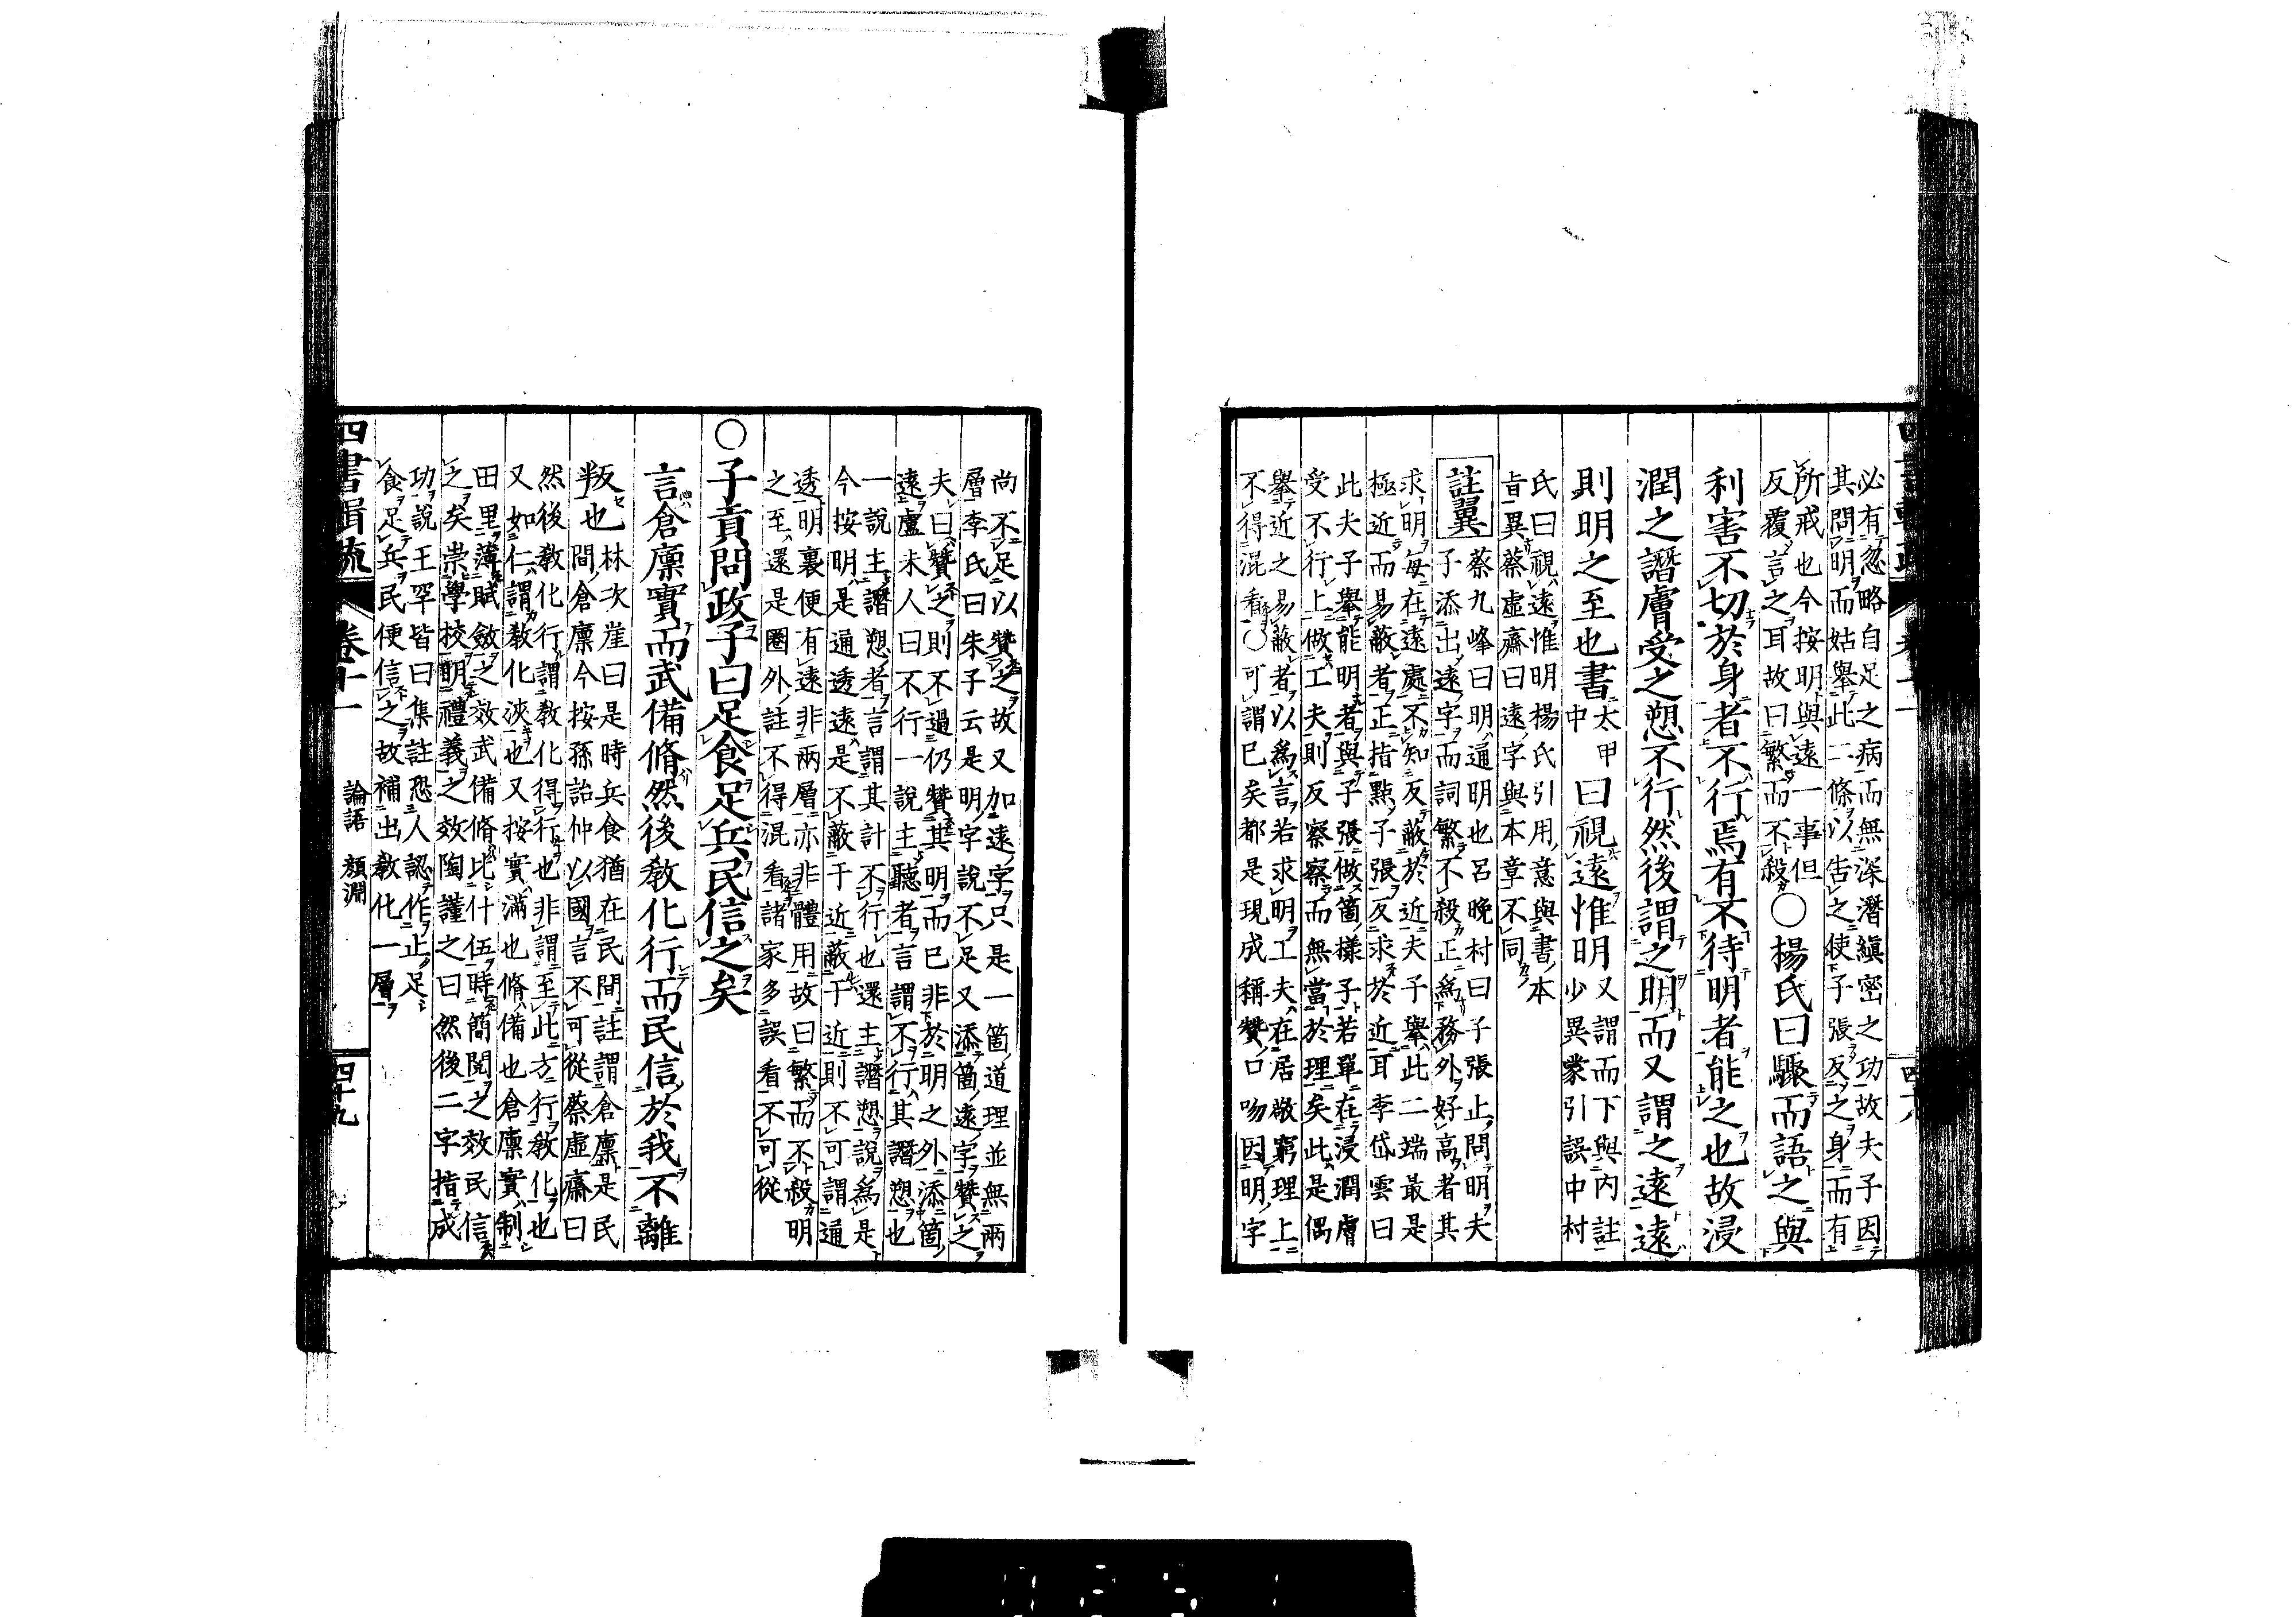 必有忽略自足之病而無深潛縝密之功故夫子因
其問明而姑舉此二條以告之使子張反之身而有
所戒也今按明與遠一事但
反覆言之耳故曰繁而不殺
○楊氏曰驟而語之與
利害不切於身者不行焉有不待明者能之也故浸
潤之譖膚受之愬不行然後謂之明而又謂之遠遠
則明之至也書
太甲
中
曰視遠惟明
又謂而下與内註
少異蒙引誤中村
氏曰視遠惟明楊氏引用意與書本
旨異蔡虛齋曰遠字與本章不同
註翼
蔡九峰曰明通明也呂晚村曰子張止問明夫
子添出遠字而詞繁不殺正為務外好高者其
求明每在遠處不知反蔽於近夫子舉此二端最是
極近而易蔽者正指點子張反求於近耳李岱雲曰
此夫子舉能明者與子張做箇樣子若單在浸潤膚
受不行上做工夫則反察察而無當於理矣此是偶
舉近之易蔽者以為言若求明工夫在居敬窮理上
不得混看○可謂已矣都是現成稱贊口吻因明字
尚不足以贊之故又加遠字只是一箇道理並無兩
層李氏曰朱子云是明字說不足又添箇遠字贊之
夫曰贊之則不過仍贊其明而已非於明之外添箇
遠盧未人曰不行一說主聽者言謂不行其譖愬也
一說主譖愬者言謂其計不行也還主譖愬說為是
今按明是通透遠是不蔽于近蔽于近則不可謂通
透明裏便有遠非兩層亦非體用故曰繁而不殺明
之至還是圈外註不得混看諸家多誤看不可從
○子貢問政子曰足食足兵民信之矣
言倉廩實而武備脩然後教化行而民信於我不離
叛也林次崖曰是時兵食猶在民間註謂倉廩是民
間倉廩今按孫詒仲以國言不可從蔡虛齋曰
然後教化行謂教化得行也非謂至此方行教化也
又如仁謂教化浹也又按實滿也脩備也倉廩實制
田里薄賦斂之效武備脩比什伍時簡閱之效民信
之矣崇學校明禮義之效陶謹之曰然後二字指成
功說王罕皆曰集註恐人認作止足
食足兵民便信之故補出教化一層
四書輯疏
卷十一
論語 顏淵
四十九